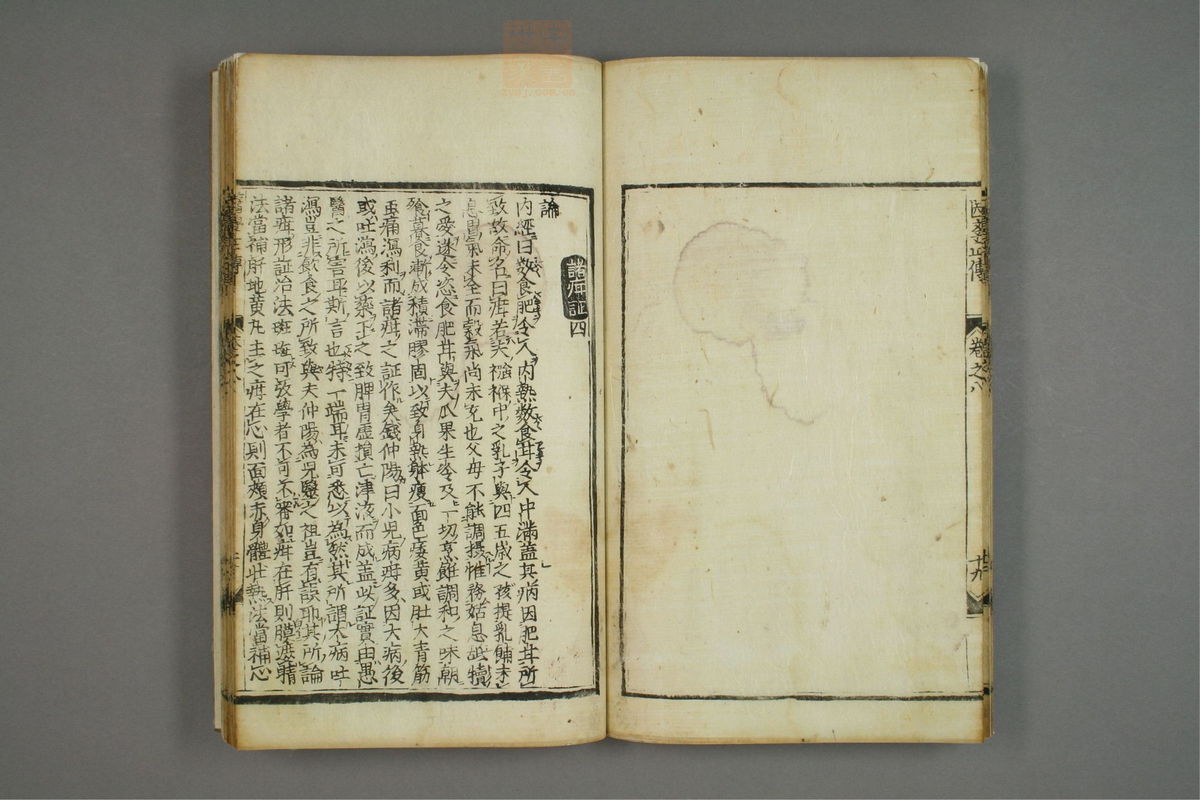 醫學正傳 卷之八 十九
諸疳証 四
論
內經曰數食肥令人內熱數食甘令人中滿蓋其病因肥甘所
致故命名曰疳若夫襁褓中之乳子與四五歲之孩提乳哺未
息胃氣未全而穀氣尚未充也父母不能調攝惟務姑息舐犢
之愛遂令恣食肥甘與夫瓜果生冷及一切烹飪調和之味朝
飧暮食漸成積滯膠固以致身熱躰瘦面色痿黃或肚大青筋
虫痛瀉利而諸疳之証作矣錢仲陽曰小兒病疳多因大病後
或吐瀉後以藥下之致脾胃虛損亡津液而成蓋此証實由愚
醫之所害耳斯言也特一端耳未可悉以為然其所謂大病吐
瀉豈非飲食之所致與夫仲陽為兒醫之祖豈有誤耶其所論
諸疳形証治法班班可攷學者不可不審如疳在肝則膜遮睛
法當補肝地黃丸主之疳在心則面頰赤身體壯熱法當補心